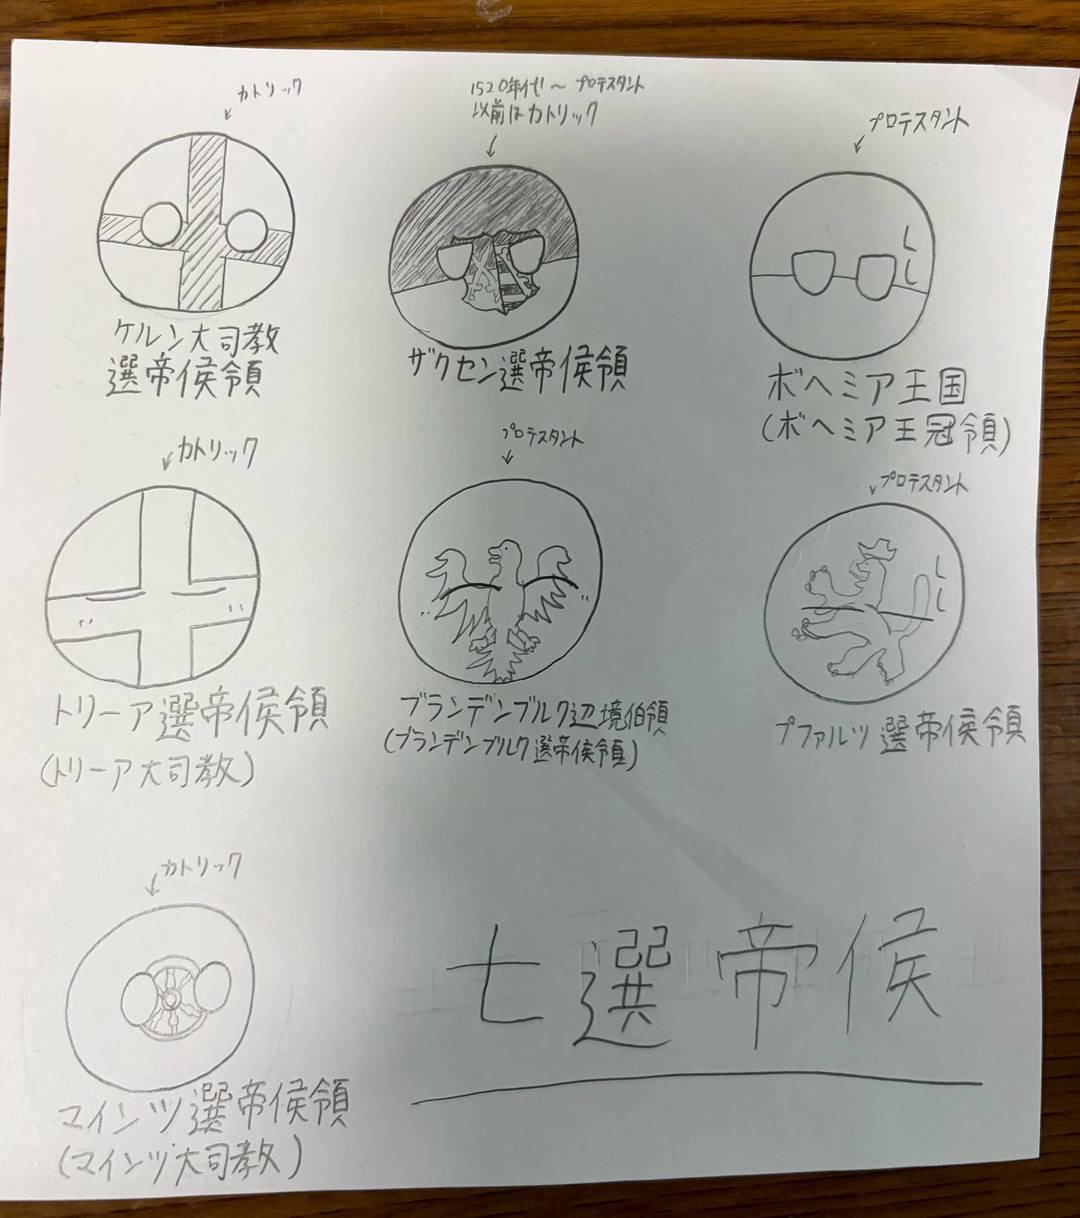 カトリック
ケルン大司教
選帝侯領
1520年代~プロテスタント
以前はカトリック
ザクセン選帝侯領
プロテスタント
ボヘミア王国
(ボヘミア王冠領)
カトリック
トリーア選帝侯領
(トリーア大司教)
プロテスタント
ブランデンブルク辺境伯領
(ブランデンブルク選帝侯領)
プロテスタント
プファルツ選帝侯領
カトリック
マインツ選帝侯領
(マインツ大司教)
七選帝侯